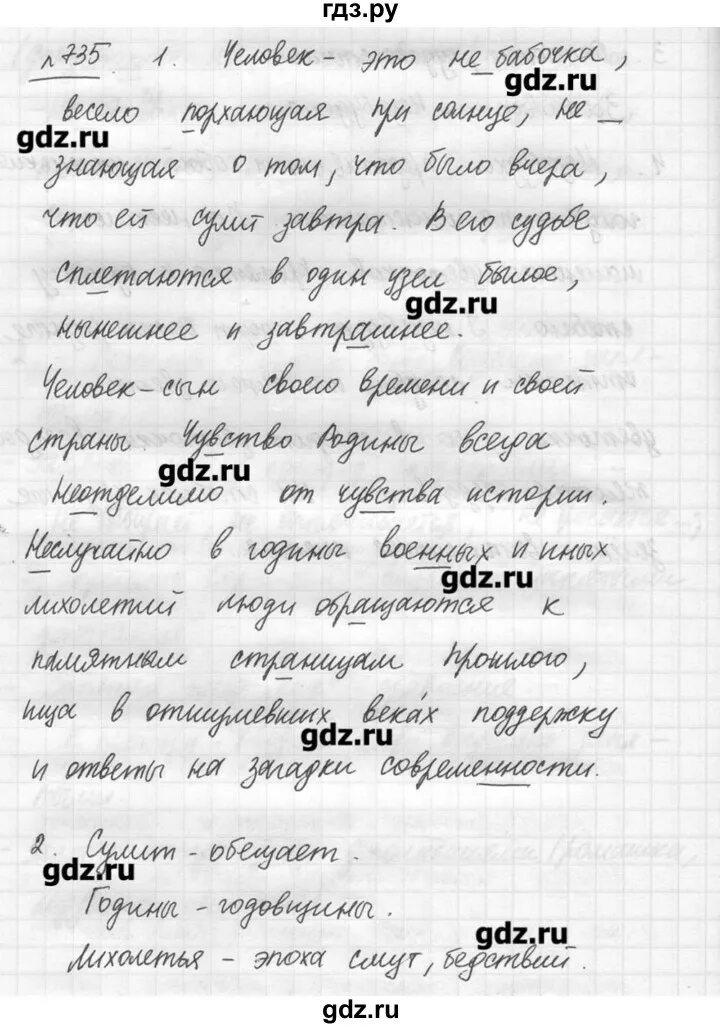 гдз.ру
№735 1. Человек - это не бабочка,
gdz.ru
весело порхающая при солнце, не
gdz.ru
знающая о том, что было вчера,
что ей сулит завтра. В его судьбе
сплетаются в один узел былое,
gdz.ru
нынешнее и завтрашнее.
Человек - сын своего времени и своей
страны. Чувство Родины всегда
gdz.ru
неотделимо от чувства истории.
Неслучайно в годины военных и иных
gdz.ru
лихолетий люди обращаются к
памятным страницам прошлого,
ища в отшумевших веках поддержку
gdz.ru
и ответы на загадки современности.
2. Сулит - обещает.
gdz.ru
Годины - годовщины.
gdz.ru
Лихолетья - эпоха смут, бедствий.
gdz.ru